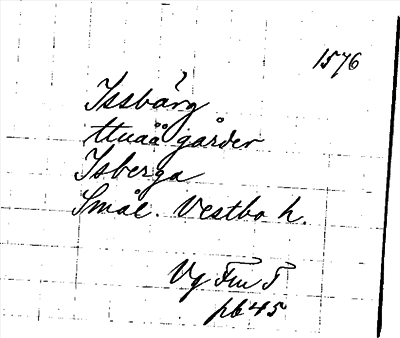 1576
Issbärg
ttuaå gårder
Isberga
Smål. Vestbo h.
Vg Fm 5
pb 45